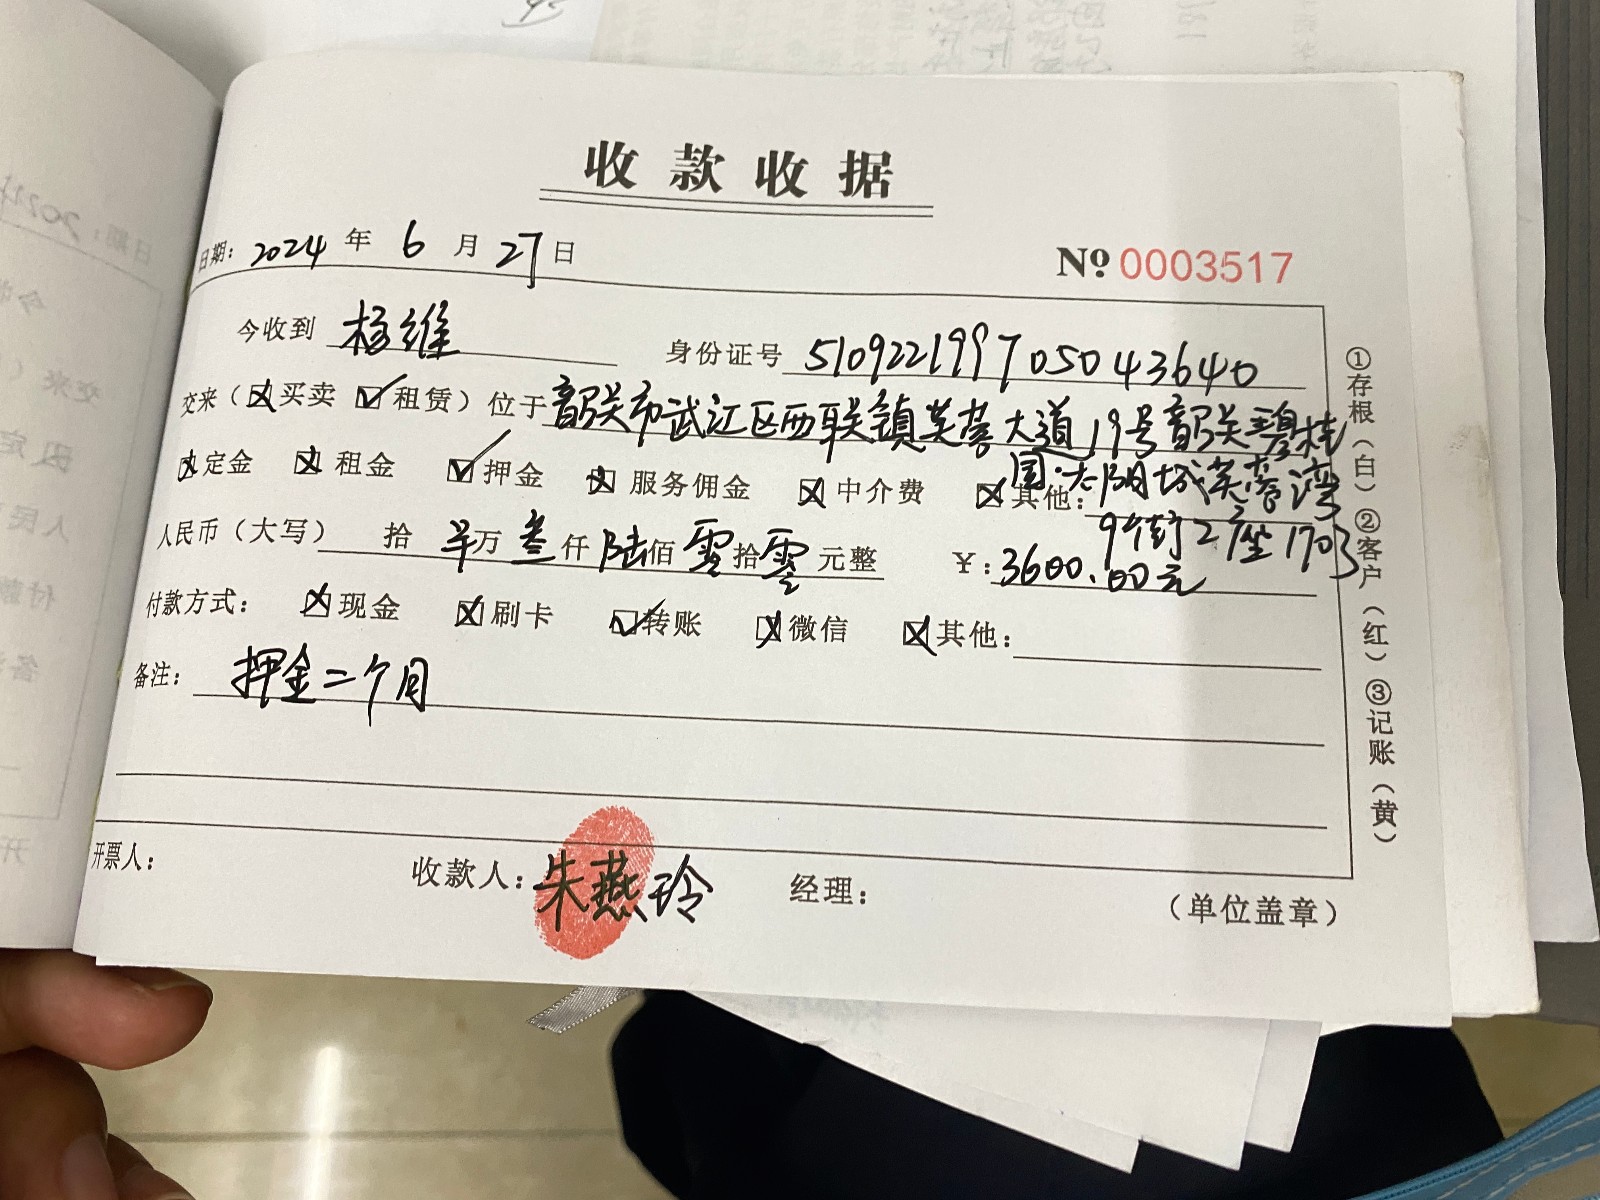 收款收据
日期: 2024 年 6 月 27 日
№ 0003517
今收到 杨维 身份证号 510922199705043640
交来（☒买卖 ☑租赁）位于 韶关市武江区西联镇芙蓉大道19号韶关碧桂
园·太阳城芙蓉湾
9街2座1703
☒定金 ☒租金 ☑押金 ☒服务佣金 ☒中介费 ☒其他:
人民币（大写） 拾 万 叁仟 陆佰 零拾 零 元整 ¥: 3600.00元
付款方式: ☒现金 ☒刷卡 ☑转账 ☒微信 ☒其他:
备注: 押金二个月
开票人: 收款人: 朱燕玲 经理: （单位盖章）
①存根（白）②客户（红）③记账（黄）